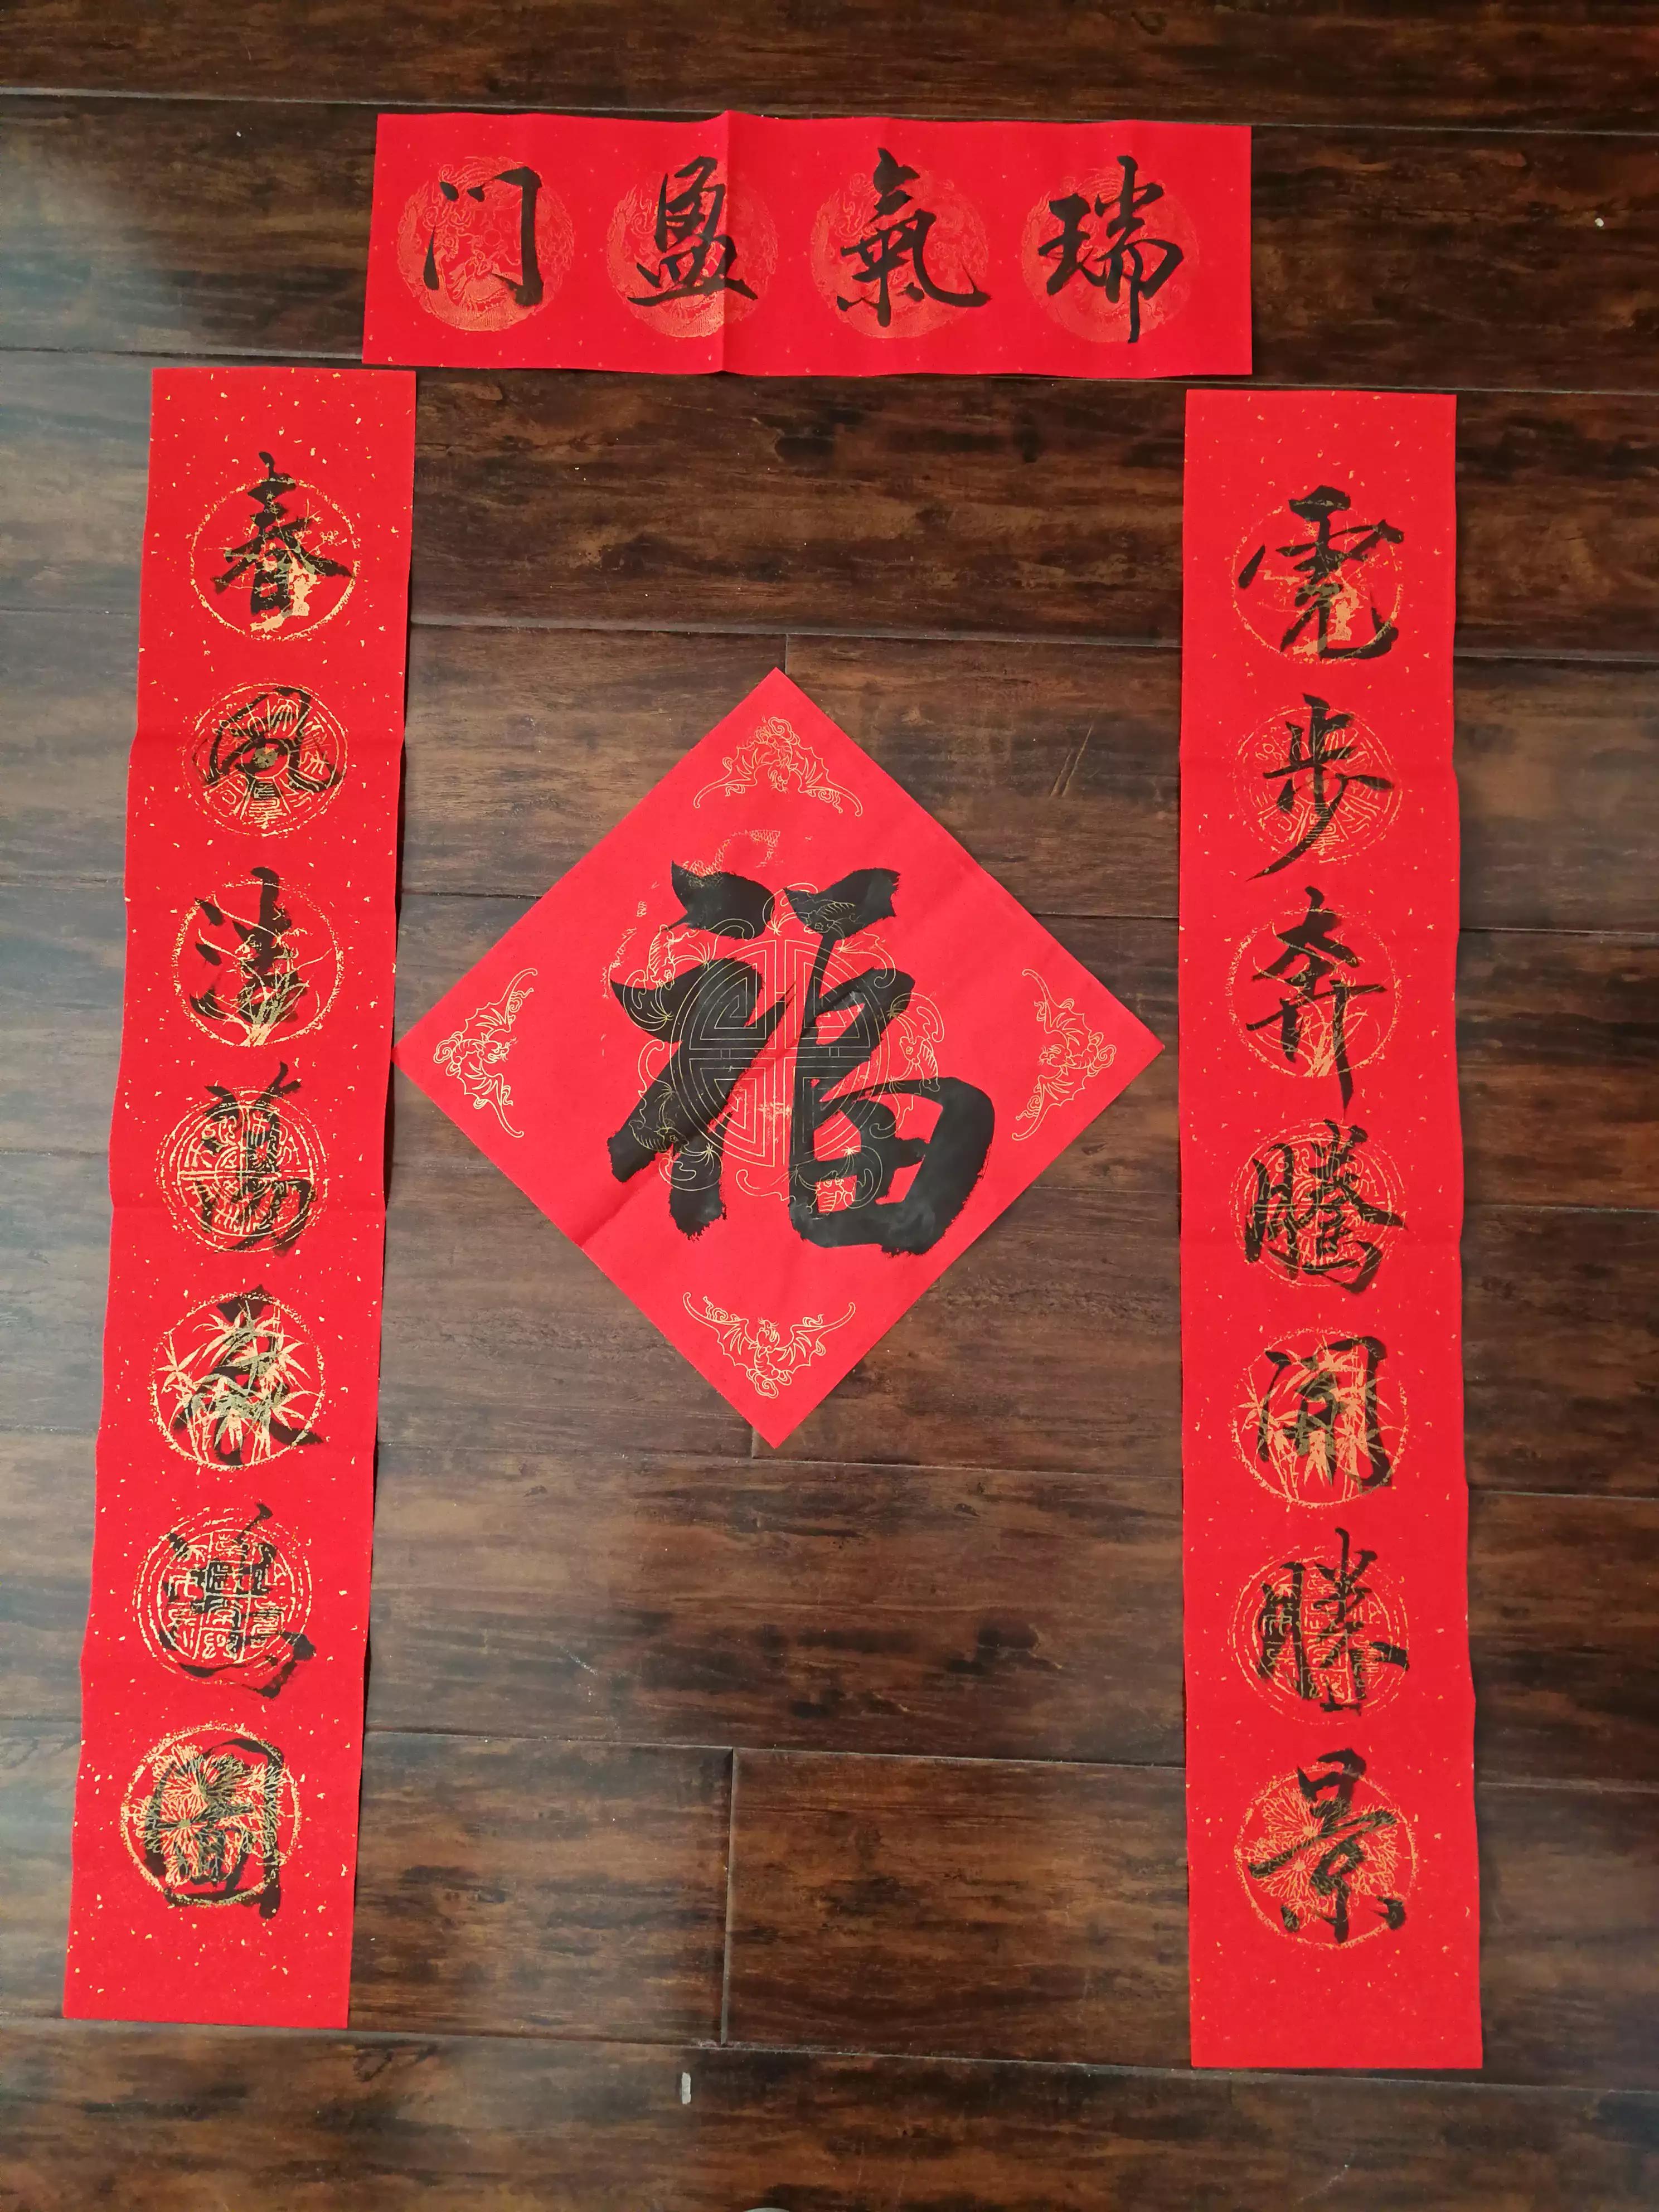 瑞氣盈门
虎步奔騰開勝景
春風浩蕩展鴻圖
福